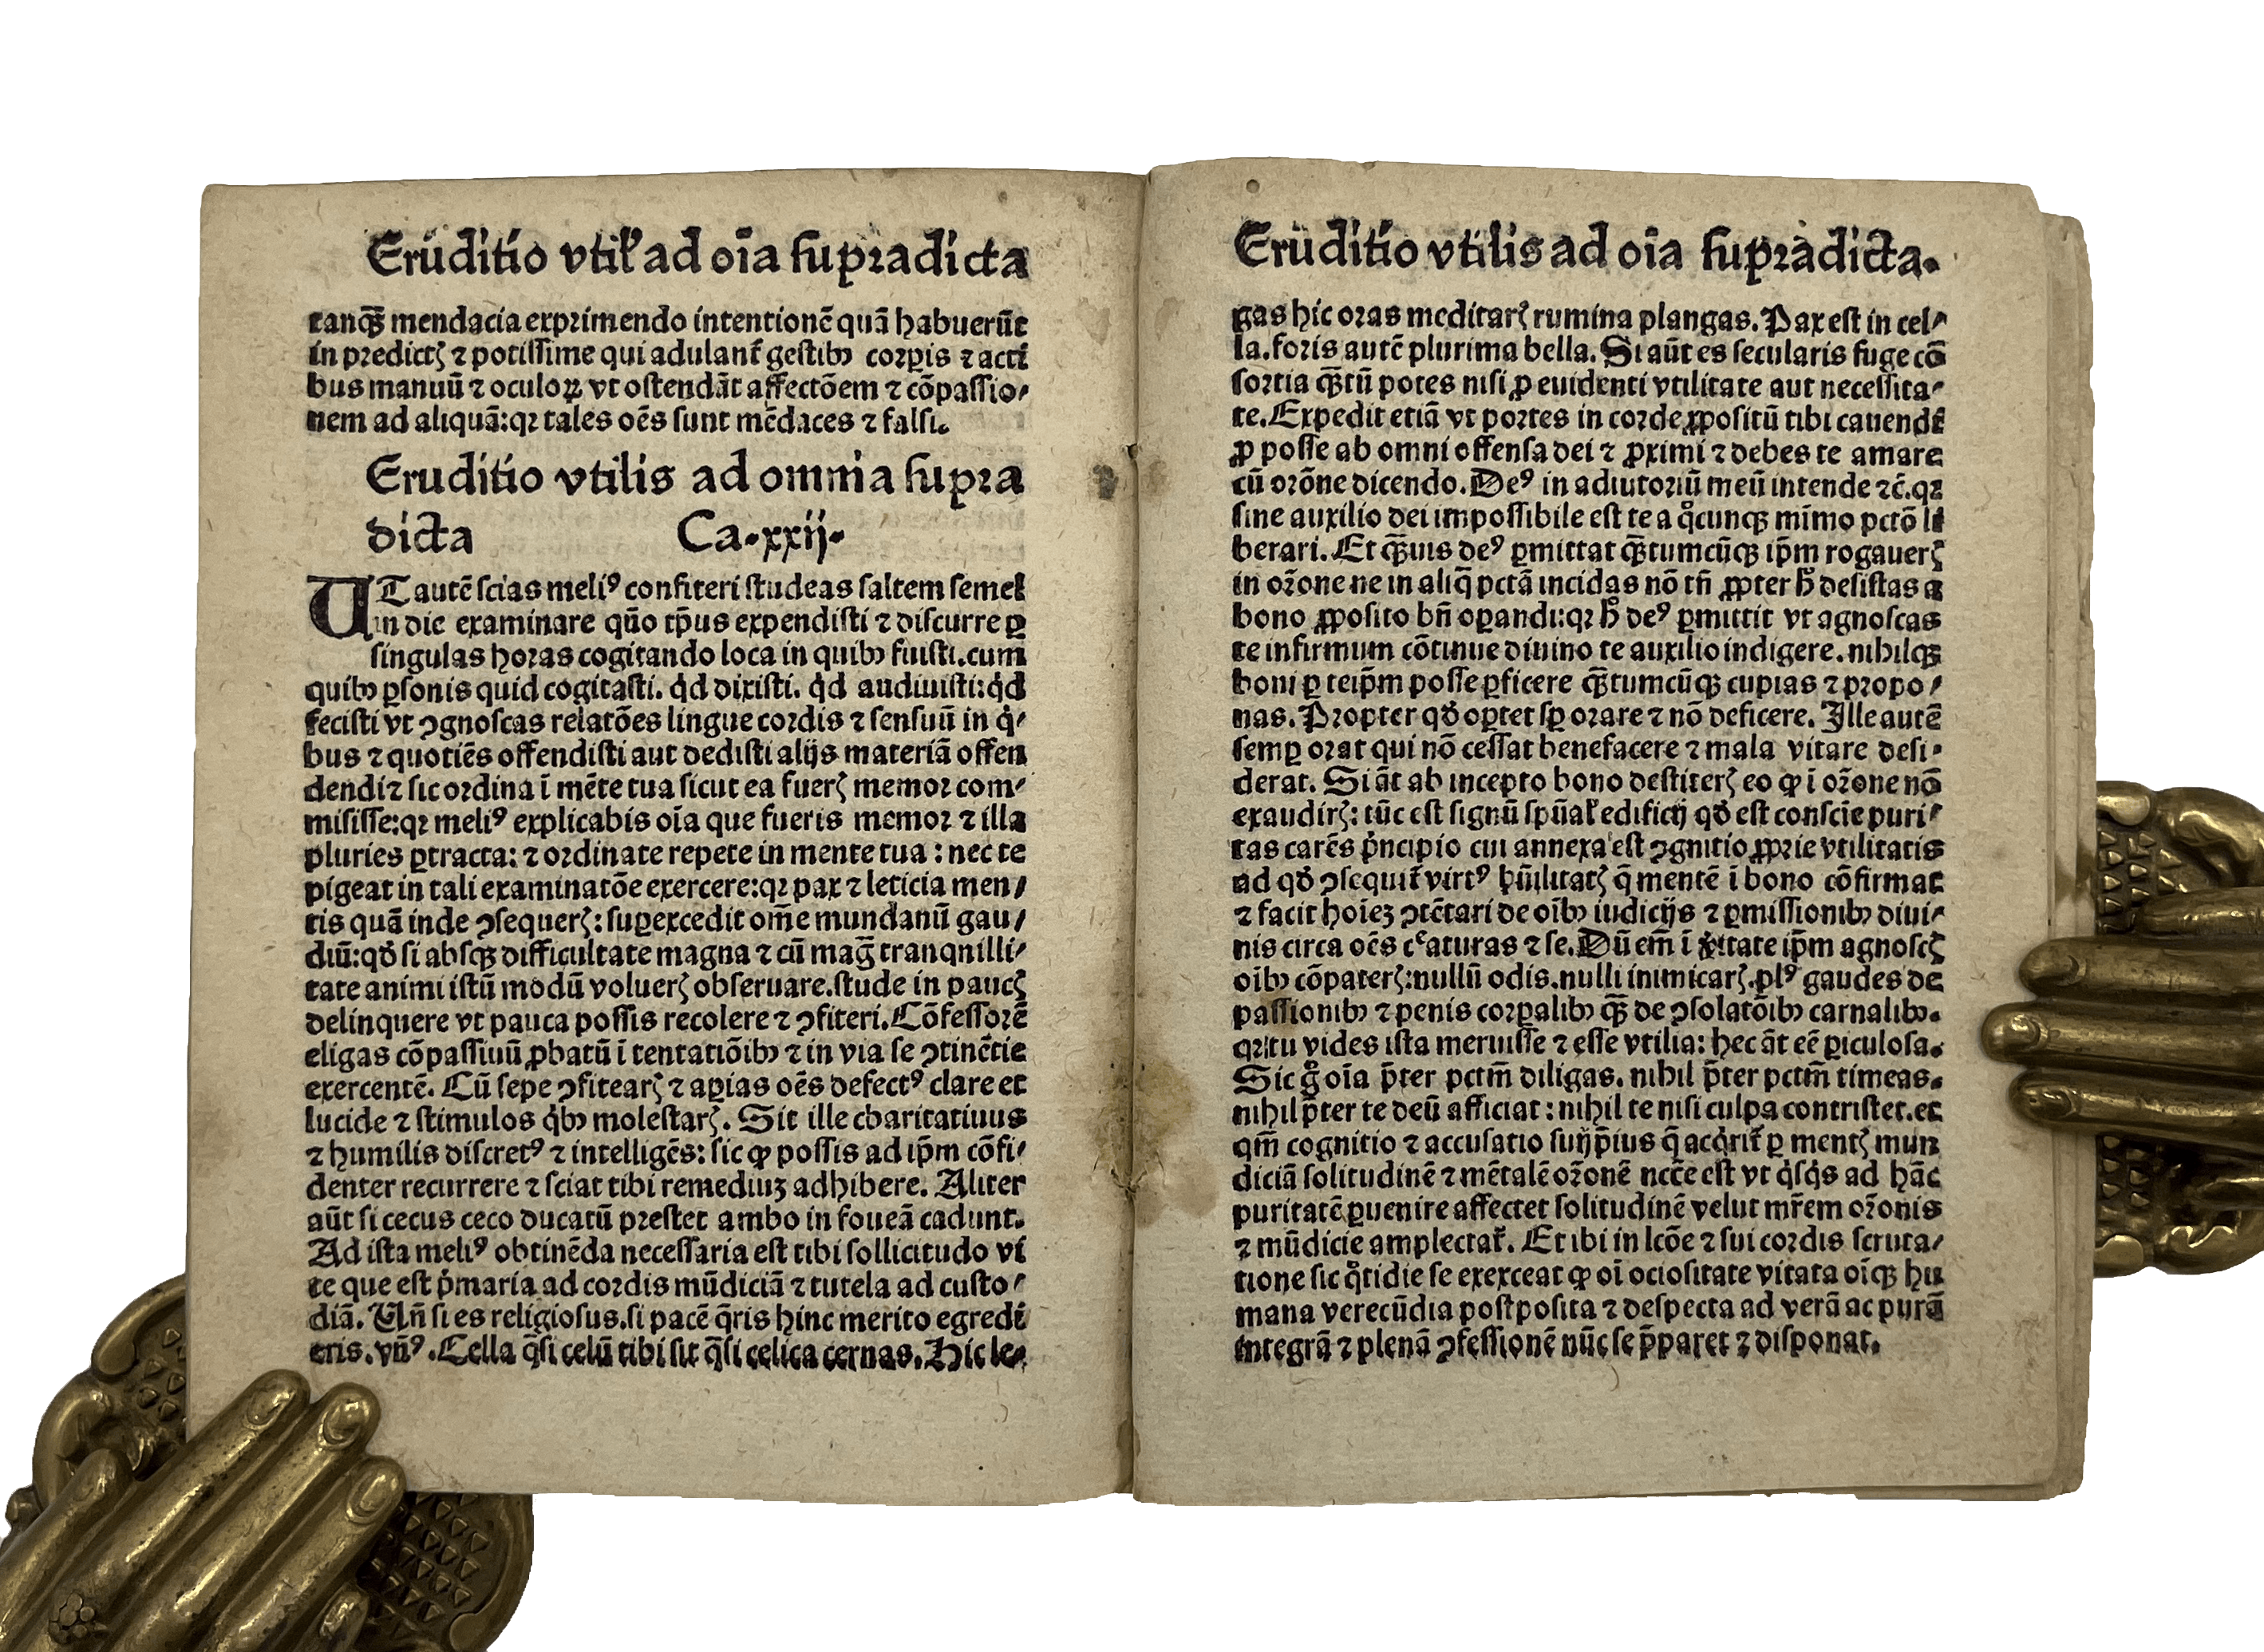 Erūditio vtilꝰ ad oīa supꝛadicta
tanqꝫ mendacia expꝛimendo intentionē quā habuerūt
in predictꝭ ⁊ potissime qui adulant᷑ gestibꝫ coꝛꝑis ⁊ acti
bus manuū ⁊ oculoꝝ vt ostendāt affectōem ⁊ cōpassio⸗
nem ad aliquā:qꝛ tales oēs sunt mēdaces ⁊ falsi.
Eruditio vtilis ad omnia supꝛa
dicta Ca.xxij.
UT autē scias meliꝰ confiteri studeas saltem semel
in die examinare qūo tp̄us expendisti ⁊ discurre ꝑ
singulas hoꝛas cogitando loca in quibꝫ fuisti.cum
quibꝫ ꝑsonis quid cogitasti. qd̓ dixisti. qd̓ audiuisti:qd̓
fecisti vt ꝯgnoscas relatōes lingue cordis ⁊ sensuū in q̓⸗
bus ⁊ quotiēs offendisti aut dedisti alijs materiā offen
dendi⁊ sic oꝛdina ī mēte tua sicut ea fuerꝭ memoꝛ com⸗
misisse:qꝛ meliꝰ explicabis oīa que fueris memoꝛ ⁊ illa
pluries ꝑtracta: ⁊ oꝛdinate repete in mente tua : nec te
pigeat in tali examinatōe exercere:qꝛ pax ⁊ leticia men⸗
tis quā inde ꝯsequerꝭ: suꝑexcedit om̄e mundanū gau⸗
diū:qd̓ si absqꝫ difficultate magna ⁊ cū maḡ tranqnilli⸗
tate animi istū modū voluerꝭ obseruare.stude in paucꝭ
delinquere vt pauca possis recolere ⁊ ꝯfiteri.Cōfessoꝛē
eligas cōpassiuū ꝓbatū ī tentatiōibꝫ ⁊ in via se ꝯtinētie
exercentē. Cū sepe ꝯfitearꝭ ⁊ aꝑias oēs defectꝰ clare et
lucide ⁊ stimulos q̓bꝫ molestarꝭ. Sit ille charitatiuus
⁊ humilis discretꝰ ⁊ intelligēs: sic ꝙ possis ad ip̄m cōfi⸗
denter recurrere ⁊ sciat tibi remediuꝫ adhibere. Aliter
aūt si cecus ceco ducatū pꝛestet ambo in foueā cadunt.
Ad ista meliꝰ obtinēda necessaria est tibi sollicitudo vi
te que est p̓maria ad coꝛdis mūdiciā ⁊ tutela ad custo⸗
diā. Un̄ si es religiosus.si pacē q̄ris hinc merito egredi
eris.vn̄ꝰ.Cella q̄si celū tibi sit q̄si celica cernas.Hic le⸗
Erūditio vtilis ad oīa supꝛadicta.
gas hic oꝛas meditarꝭ rumina plangas.Pax est in cel⸗
la.foris autē plurima bella.Si aūt es secularis fuge cō
soꝛtia qꝫtū potes nisi ꝓ euidenti vtilitate aut necessita⸗
te.Expedit etiā vt poꝛtes in coꝛde ꝓpositū tibi cauendi
ꝓ posse ab omni offensa dei ⁊ ꝓximi ⁊ debes te amare
cū oꝛōne dicendo.Deꝰ in adiutoꝛiū meū intende ⁊c̄.qꝛ
sine auxilio dei impossibile est te a qͦcunqꝫ mīmo pctō li
berari. Et qꝫuis deꝰ ꝑmittat qꝫtumcūqꝫ ip̄m rogauerꝭ
in oꝛ̄one ne in aliq̄ pctā incidas nō tn̄ ꝓpter hͦ desistas a
bono ꝓposito bn̄ oꝑandi:qꝛ hͦ deꝰ ꝑmittit vt agnoscas
te infirmum cōtinue diuino te auxilio indigere.nihilqꝫ
boni ꝑ teip̄m posse ꝑficere qꝫtumcūqꝫ cupias ⁊ pꝛopo⸗
nas. Pꝛopter qd̓ oꝑtet sꝑ oꝛare ⁊ nō deficere. Ille autē
semꝑ oꝛat qui nō cessat benefacere ⁊ mala vitare desi⸗
derat. Si āt ab incepto bono destiterꝭ eo ꝙ ī oꝛ̄one nō
exaudirꝭ: tūc est signū sp̄ualꝭ edificij qd̓ est conscie puri⸗
tas carēs p̓ncipio cui annexa est ꝯgnitio ꝓpꝛie vtilitatis
ad qd̓ ꝯsequit᷑ virtꝰ hūilitatꝭ q̄ mentē ī bono cōfirmat
⁊ facit hoīeꝫ ꝯtētari de oībꝫ iudicijs ⁊ ꝑmissionibꝫ diui⸗
nis circa oēs cͤaturas ⁊ se.Dū em̄ ī v̓itate ip̄m agnoscꝭ
oībꝫ cōpaterꝭ:nullū odis.nulli inimicarꝭ.plꝰ gaudes de
passionibꝫ ⁊ penis coꝛꝑalibꝫ qꝫ de ꝯsolatōibꝫ carnalibꝫ.
qꝛ tu vides ista meruisse ⁊ esse vtilia: hec āt eē ꝑiculosa.
Sic gͦ oīa p̄ter pctm̄ diligas. nihil p̄ter pctm̄ timeas.
nihil p̄ter te deū afficiat : nihil te nisi culpa contristet.et
qm̄ cognitio ⁊ accusatio suijp̄ius q̄ acq̓rit᷑ ꝑ mentꝭ mun
diciā solitudinē ⁊ mētalē oꝛ̄onē nccē est vt q̓sq̓s ad hāc
puritatē ꝑuenire affectet solitudinē velut mr̄em oꝛ̄onis
⁊ mūdicie amplectat᷑. Et ibi in lcōe ⁊ sui coꝛdis scruta⸗
tione sic qͦtidie se exerceat ꝙ oī ociositate vitata oīqꝫ hu
mana verecūdia postposita ⁊ despecta ad verā ac purā
integrā ⁊ plenā ꝯfessionē nūc se p̄paret ⁊ disponat.